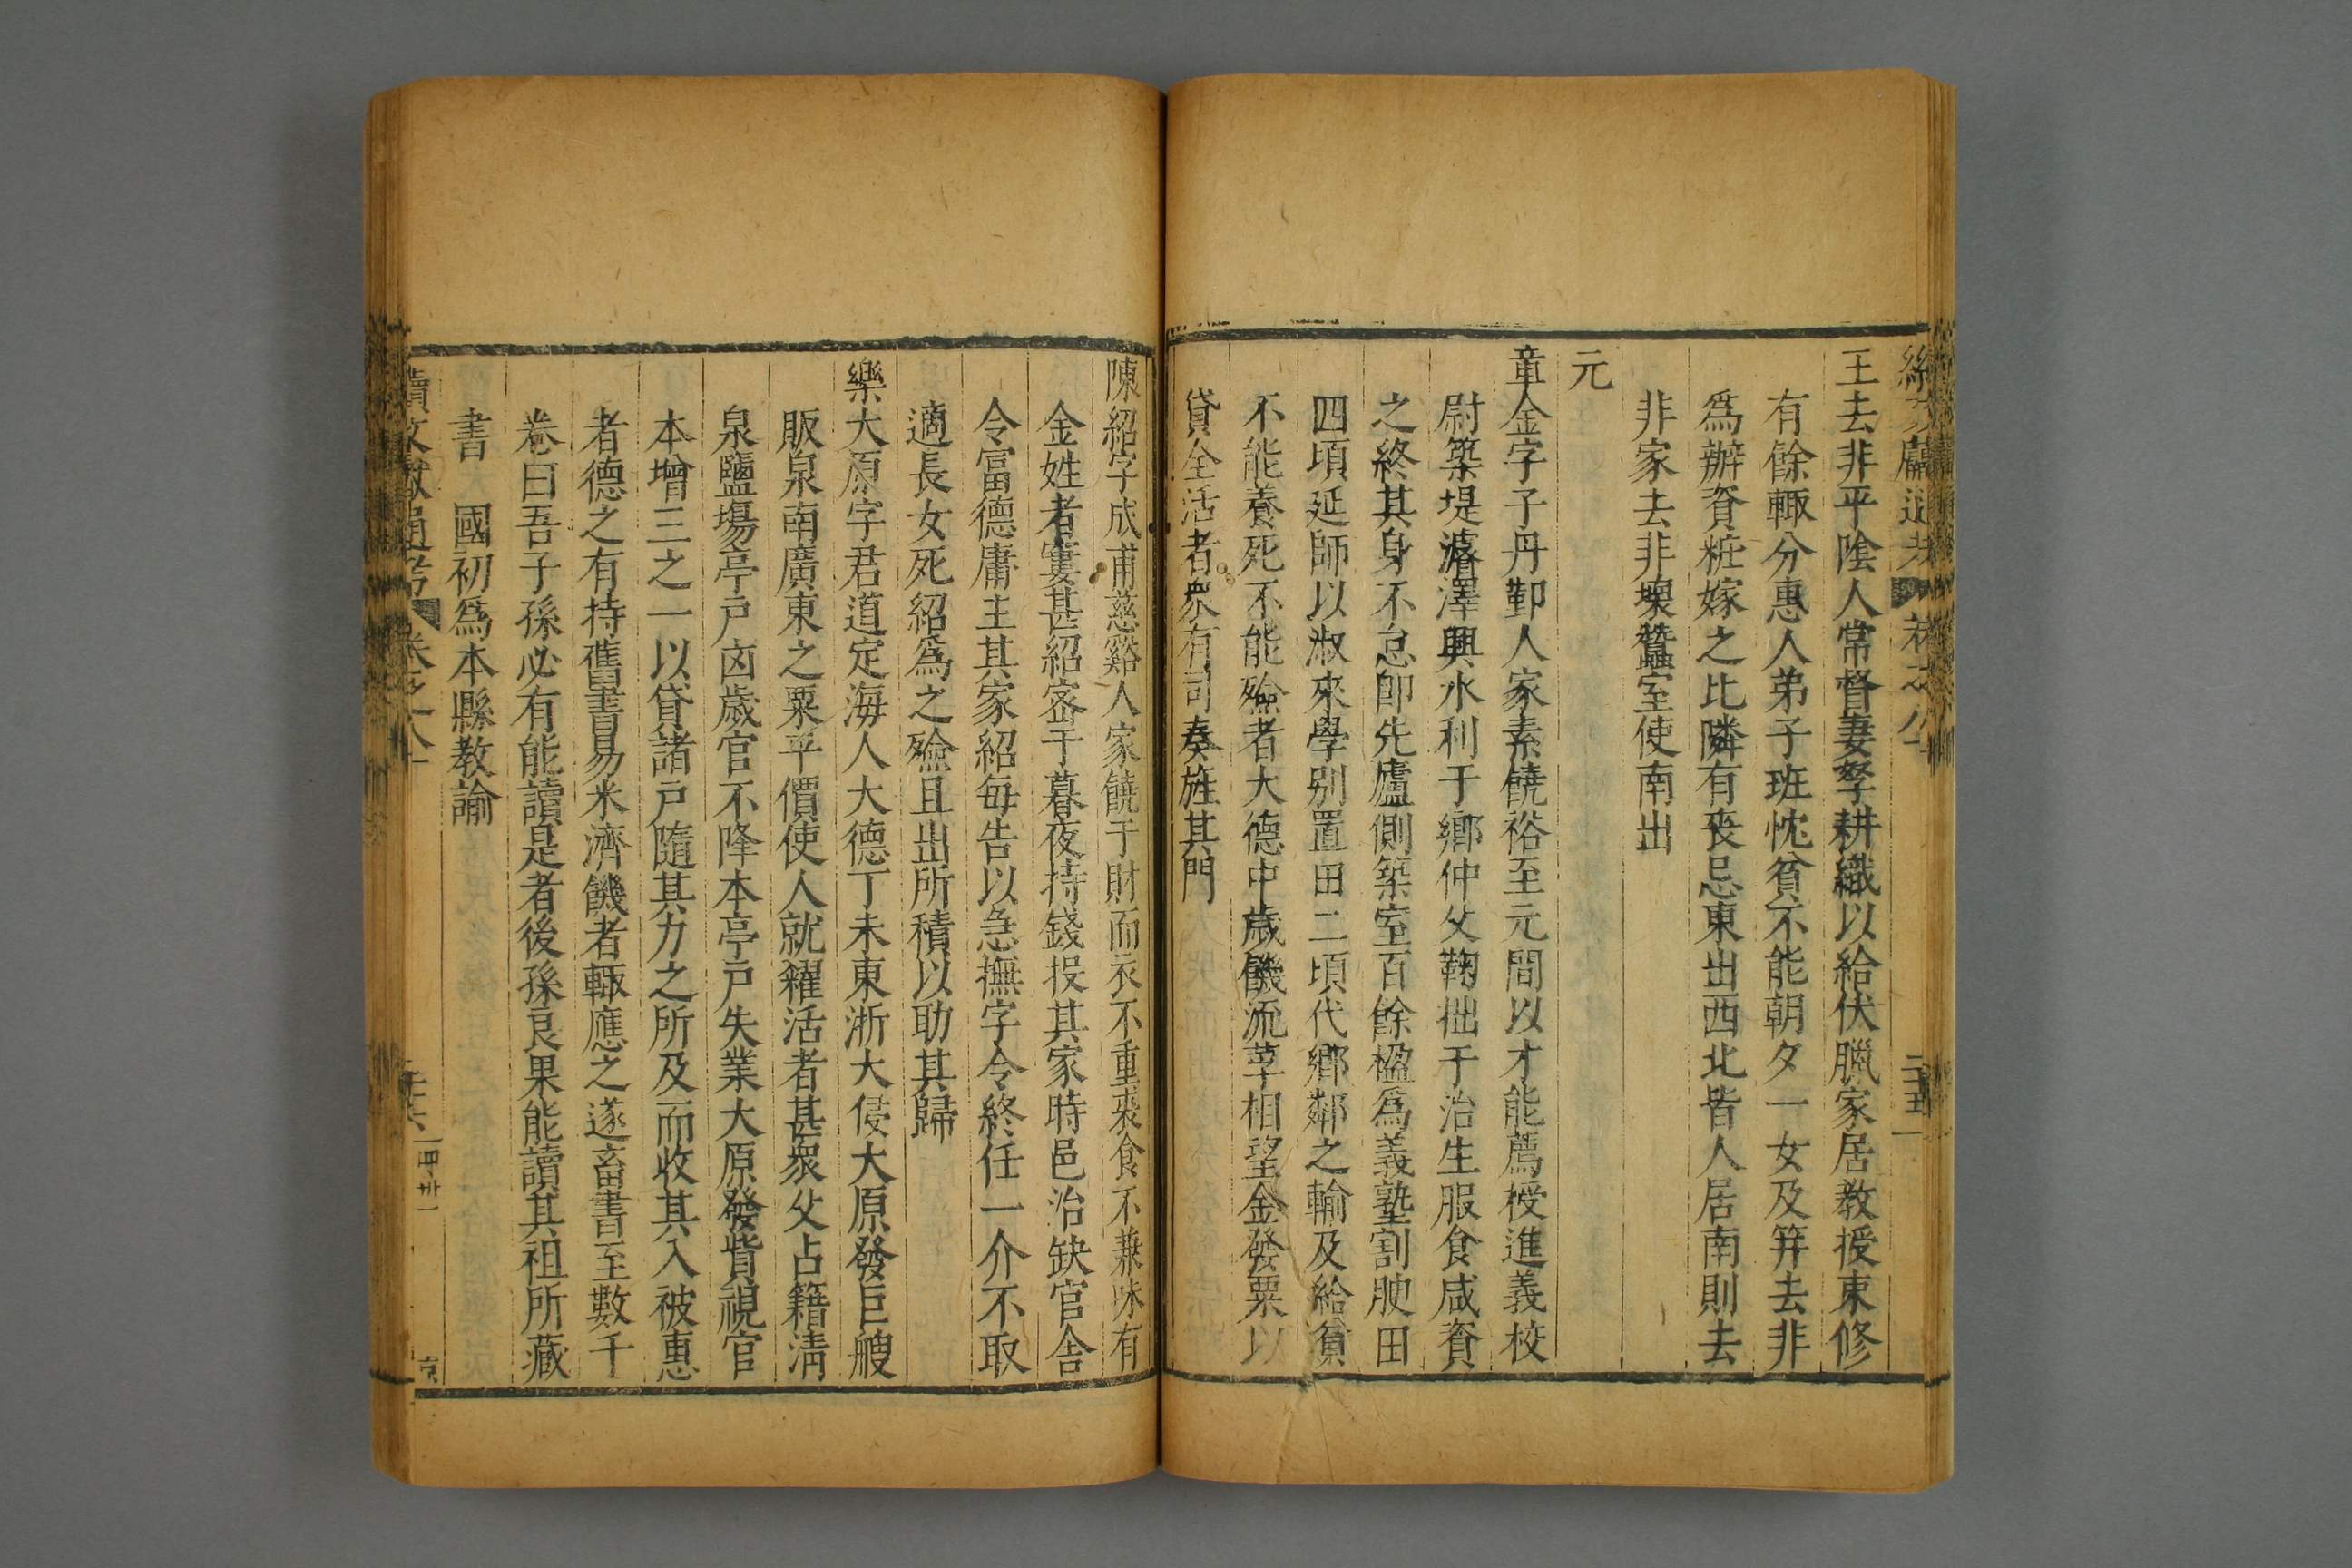 王去非平陰人常督妻孥耕織以給伏臘家居教授束修
有餘輙分惠人弟子班忱貧不能朝夕一女及笄去非
爲辦資粧嫁之比隣有喪忌東出西北皆人居南則去
非家去非壞蠶室使南出
元
童金字子丹鄞人家素饒裕至元間以才能薦授進義校
尉築堤濬澤興水利于鄉仲父鞫拙于治生服食咸資
之終其身不怠卽先廬側築室百餘楹爲義塾割腴田
四頃延師以淑來學別置田二頃代鄉鄰之輸及給貧
不能養死不能殮者大德中歲饑流莩相望金發粟以
貸全活者衆有司奏旌其門
陳紹字成甫慈谿人家饒于財而衣不重裘食不兼味有
金姓者寠甚紹宻于暮夜持錢投其家時邑治缺官舍
令富德庸主其家紹每告以急撫字令終任一介不取
適長女死紹爲之殮且出所積以助其歸
樂大原字君道定海人大德丁未東浙大侵大原發巨艘
販泉南廣東之粟平價使人就糴活者甚衆父占籍淸
泉鹽場亭戸凶歲官不降本亭戸失業大原發貲視官
本增三之一以貸諸戸隨其力之所及而收其入被惠
者德之有持舊書易米濟饑者輙應之遂畜書至數千
卷曰吾子孫必有能讀是者後孫良果能讀其祖所藏
書 國初爲本縣教諭
續文獻通考 卷之八十